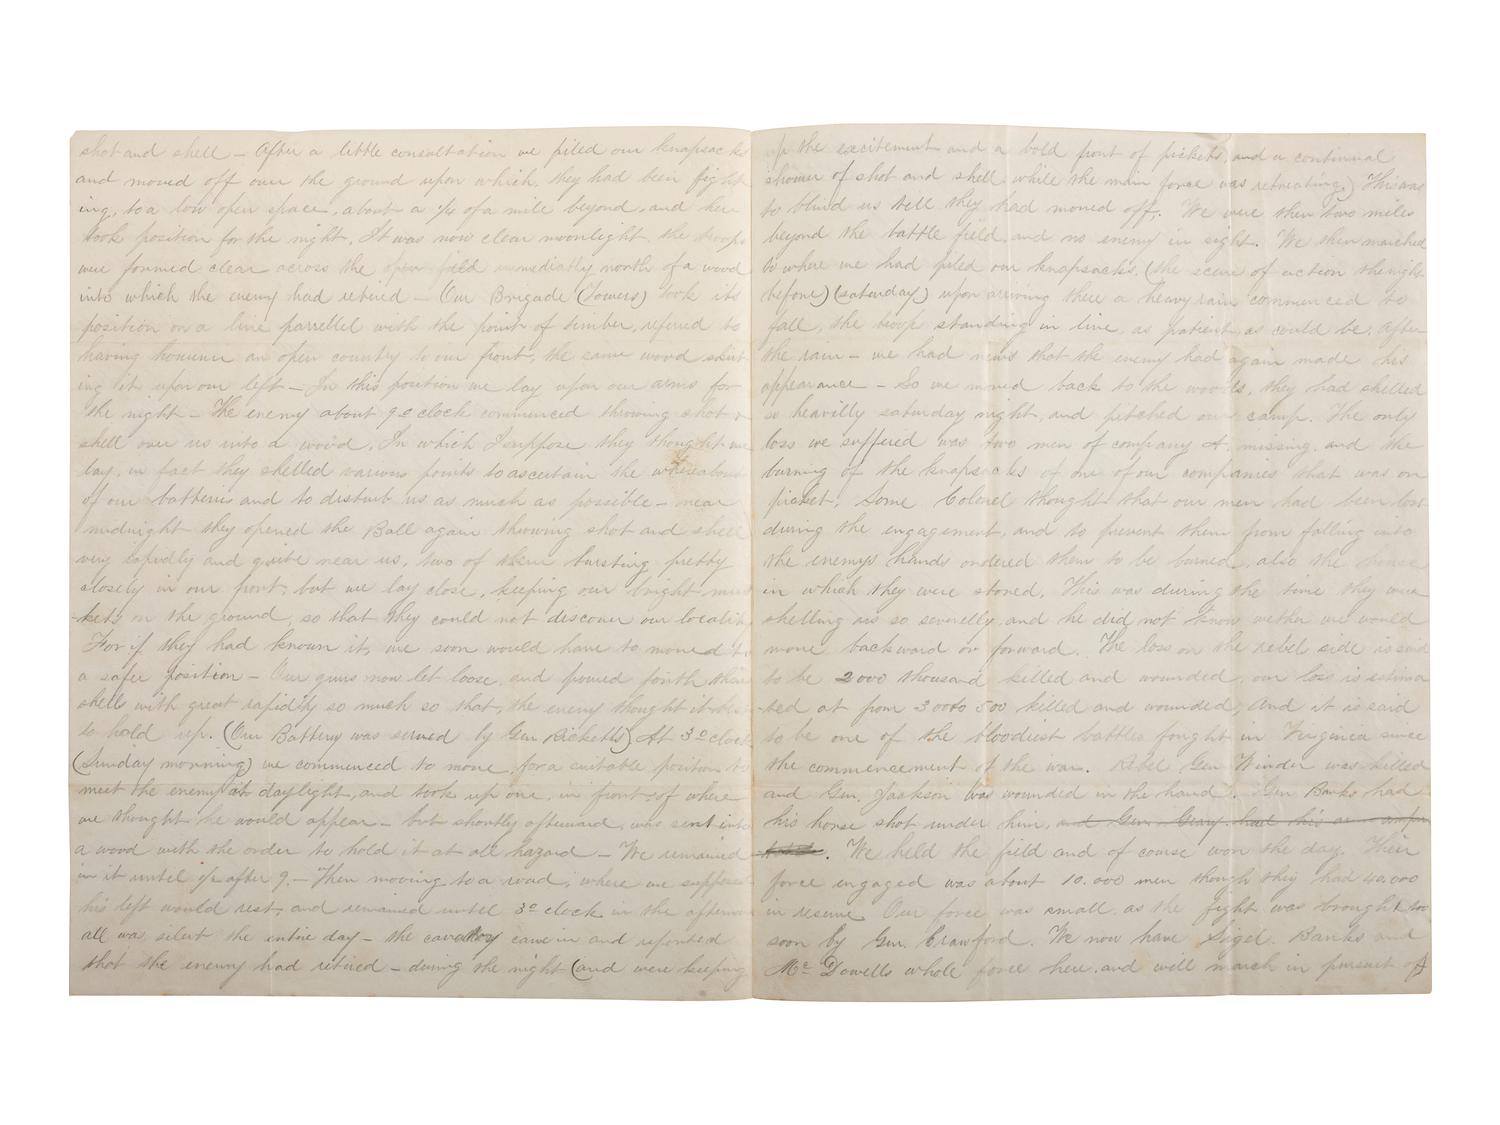 shot and shell – After a little consultation we piled our knapsacks
and moved off over the ground upon which, they had been fight
ing, to a low open space, about a ¼ of a mile beyond, and here
took position for the night. It was now clear moonlight, the troops
were formed clear across the open field immediatly north of a wood
into which the enemy had retired – Our Brigade (Towers) took its
position on a line parrellel with the point of timber, referred to
having however an open country to our front, the same wood skirt
ing it upon our left – In this position we lay upon our arms for
the night – The enemy about 9 o clock commenced throwing shot &
shell over us into a wood, In which I suppose they thought we
lay, in fact they shelled various points to ascertain the whereabouts
of our batteries and to disturb us as much as possible – near
midnight they opened the Ball again throwing shot and shell
very rapidly and quite near us, two of them bursting pretty
closely in our front, but we lay close, keeping our bright mus
kets on the ground, so that they could not discover our locality
For if they had known it, we soon would have to moved to
a safer position – Our guns now let loose, and poured forth their
shells with great rapidity so much so that, the enemy thought it best
to hold up. (Our Battery was served by Gen Ricketts) At 3 o clock
(Sunday morning) we commenced to move, for a suitable position to
meet the enemy at daylight, and took up one, in front of where
we thought he would appear – but shortly afterward, was sent into
a wood with the order to hold it at all hazard – We remained
in it until ½ after 9. – Then moving to a road, where we supposed
his left would rest, and remained until 3 o clock in the afternoon
all was silent the entire day – the cavalry came in and reported
that the enemy had retired – during the night (and were keeping
up the excitement and a bold front of pickets, and a continual
shower of shot and shell while the main force was retreating.) This was
to blind us till they had moved off. We were then two miles
beyond the battle field, and no enemy in sight. We then marched
to where we had piled our knapsacks. (the scene of action the night
before) (saturday) upon arriving there a heavy rain commenced to
fall, the troop standing in line, as patient as could be. After
the rain – we had news that the enemy had again made his
appearance – So we moved back to the woods, they had shelled
so heavilly saturday night, and pitched our camp. The only
loss we suffered was two men of company A. missing and the
burning of the knapsacks of one of our companies that was on
picket. Some Colonel thought that our men had been lost
during the engagement, and to prevent them from falling into
the enemys hands ordered them to be burned, also the house
in which they were stored. This was during the time they were
shelling us so severelly and he did not know wether we would
move backward or forward. The loss on the rebel side is said
to be 2000 thousand killed and wounded, our loss is estima
ted at from 300 to 500 killed and wounded, And it is said
to be one of the bloodiest battles fought in Virginia since
the commencement of the war. Rebel Gen Winder was killed
and Gen. Jackson was wounded in the hand. Gen Banks had
his horse shot under him, and Gen. Geary had his arm ampu
tated. We held the field and of course won the day. Their
force engaged was about 10.000 men though they had 40.000
in reserve Our force was small, as the fight was brought too
soon by Gen. Crawford. We now have Sigel. Banks and
Mc Dowells whole force here, and will march in pursuit of